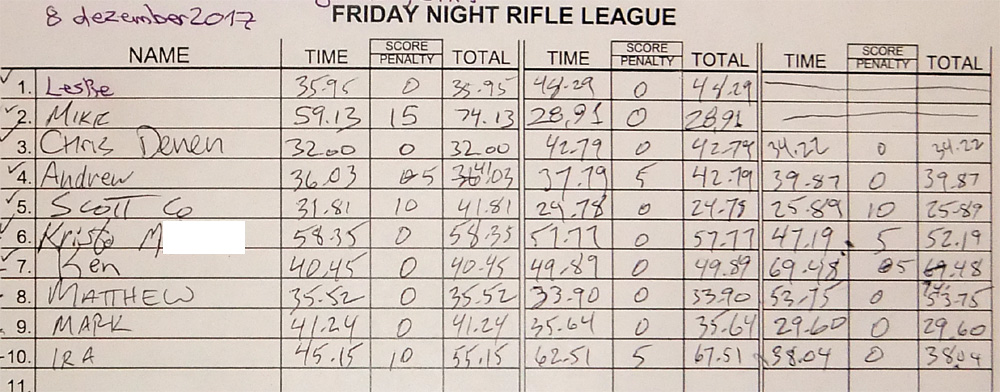 8 dezember 2017
FRIDAY NIGHT RIFLE LEAGUE
NAME TIME SCORE PENALTY TOTAL TIME SCORE PENALTY TOTAL TIME SCORE PENALTY TOTAL
1. Leslie 35.95 0 35.95 44.29 0 44.29
2. MIKE 59.13 15 74.13 28.91 0 28.91
3. Chris Denen 32.00 0 32.00 42.79 0 42.79 34.22 0 34.22
4. Andrew 36.03 5 41.03 37.79 5 42.79 39.87 0 39.87
5. Scott Co 31.81 10 41.81 24.78 0 24.78 25.89 10 25.89
6. Krista M 58.35 0 58.35 57.77 0 57.77 47.19 5 52.19
7. Ken 40.45 0 40.45 49.89 0 49.89 69.48 5 .48
8. MATTHEW 35.52 0 35.52 33.90 0 33.90 53.75 0 53.75
9. MARK 41.24 0 41.24 35.64 0 35.64 29.60 0 29.60
10. IRA 45.15 10 55.15 62.51 5 67.51 38.04 0 38.04
11.